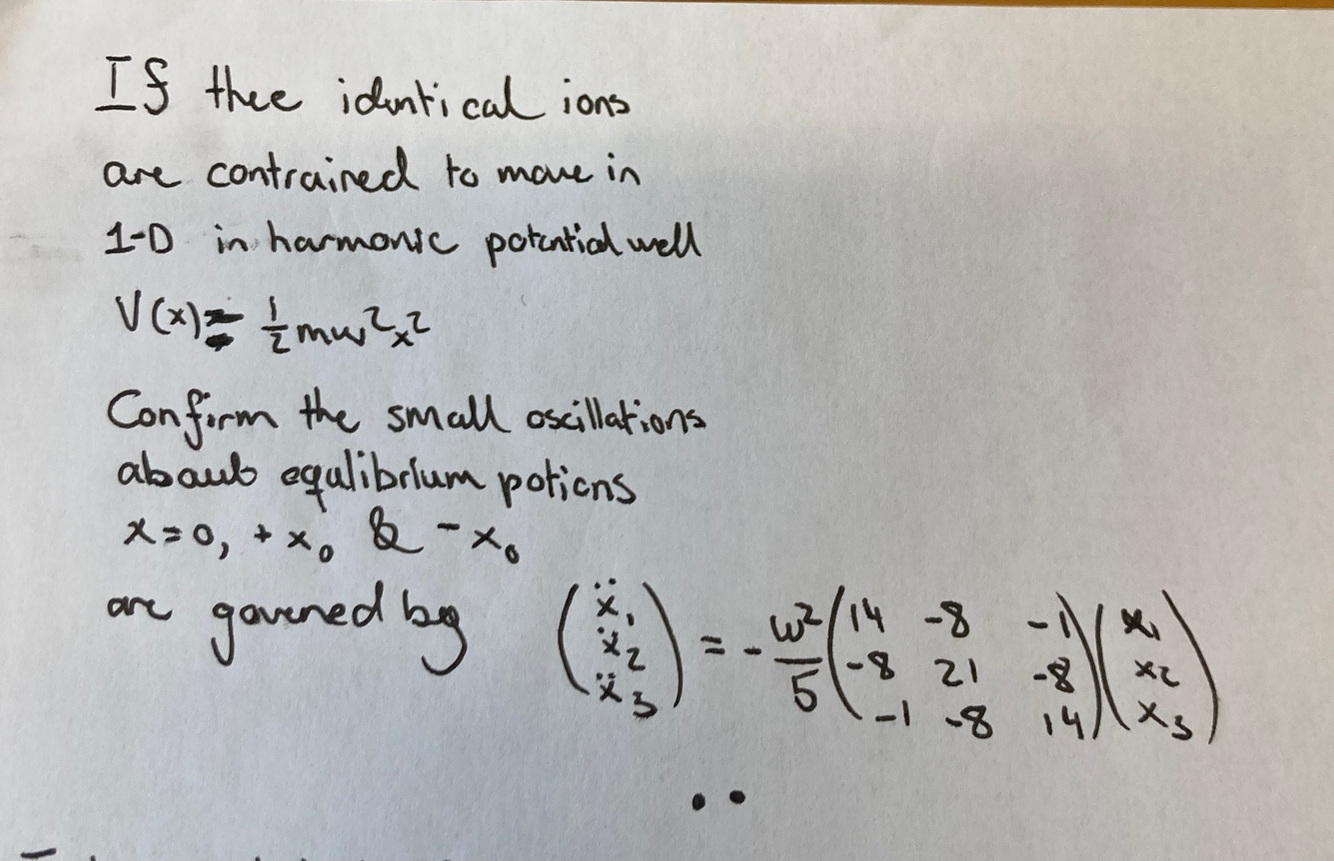 If thee identical ions
are contrained to move in
1-D in harmonic potential well
V(x) = 1/2 mω²x²
Confirm the small oscillations
about equlibrium potions
x=0, +x₀ & -x₀
are govened by (ẍ₁ ẍ₂ ẍ₃) = - ω²/5 (14 -8 -1 / -8 21 -8 / -1 -8 14) (x₁ x₂ x₃)